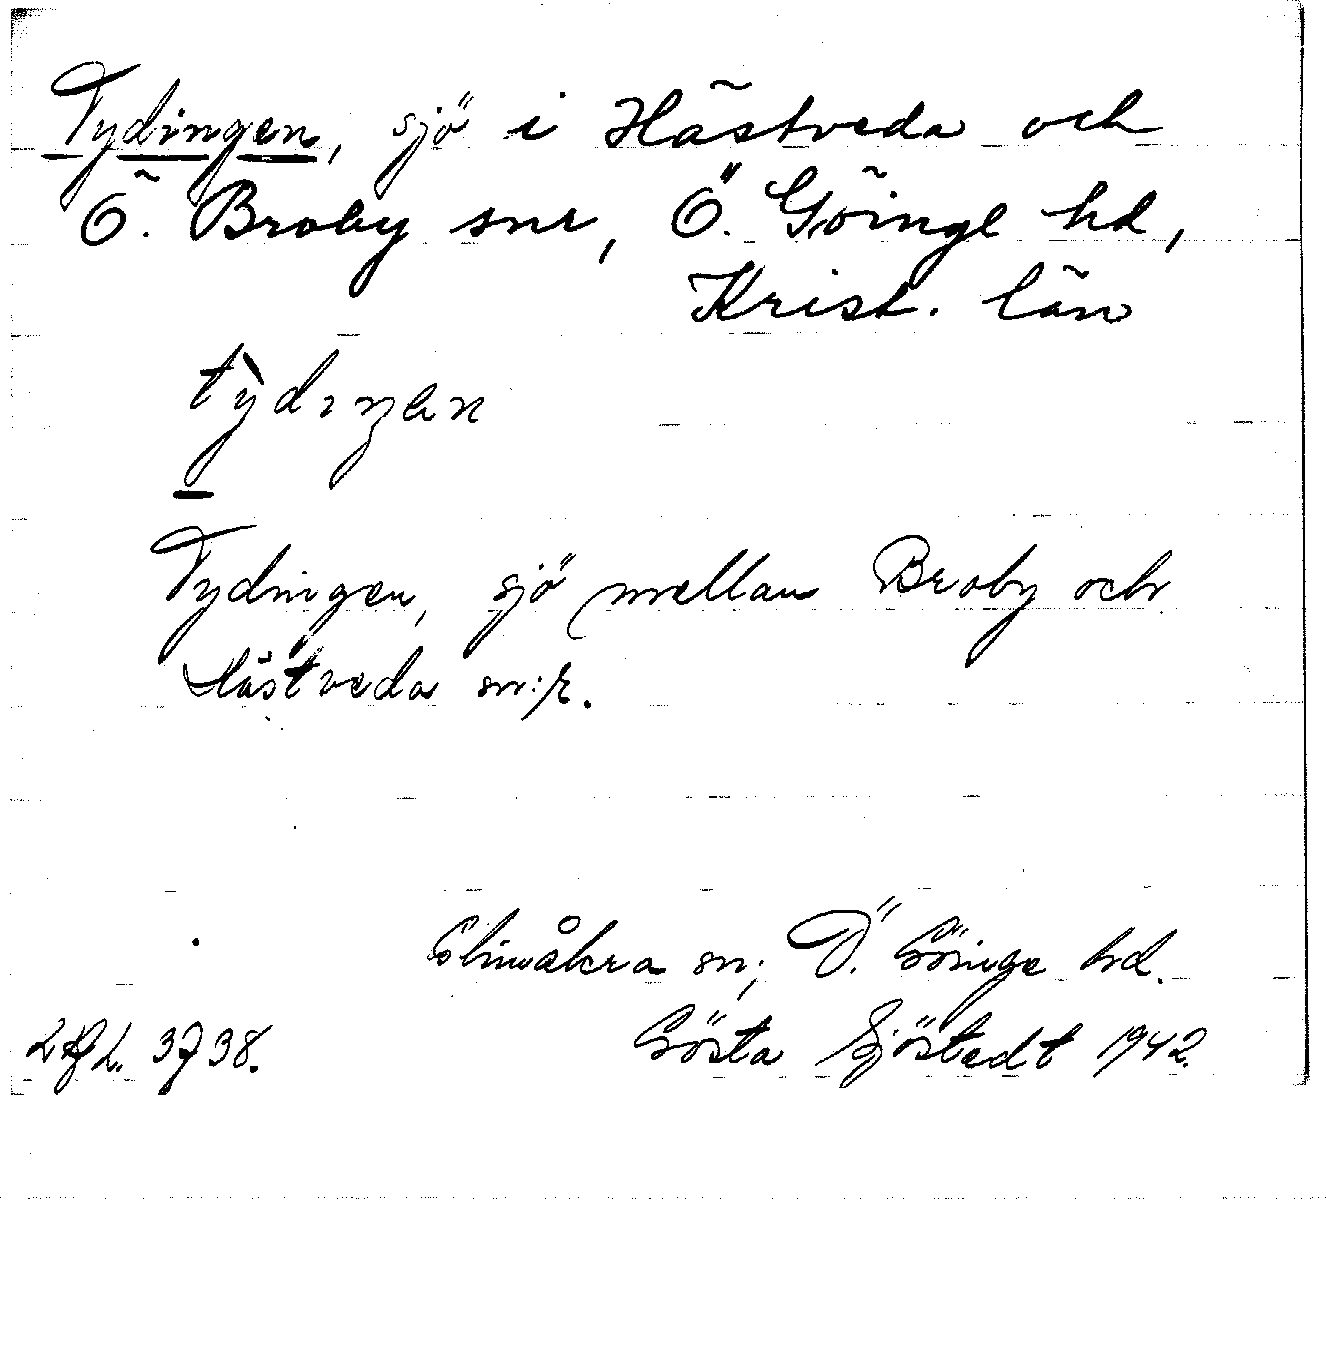 Tydingen, sjö i Hästveda och
Ö. Broby snr, Ö. Göinge hd,
Krist. län
tỳdıŋen
Tydingen, sjö mellan Broby och
Hästveda sn:r.
Glimåkra sn; Ö. Göinge hd.
3738. Gösta Sjöstedt 1942.